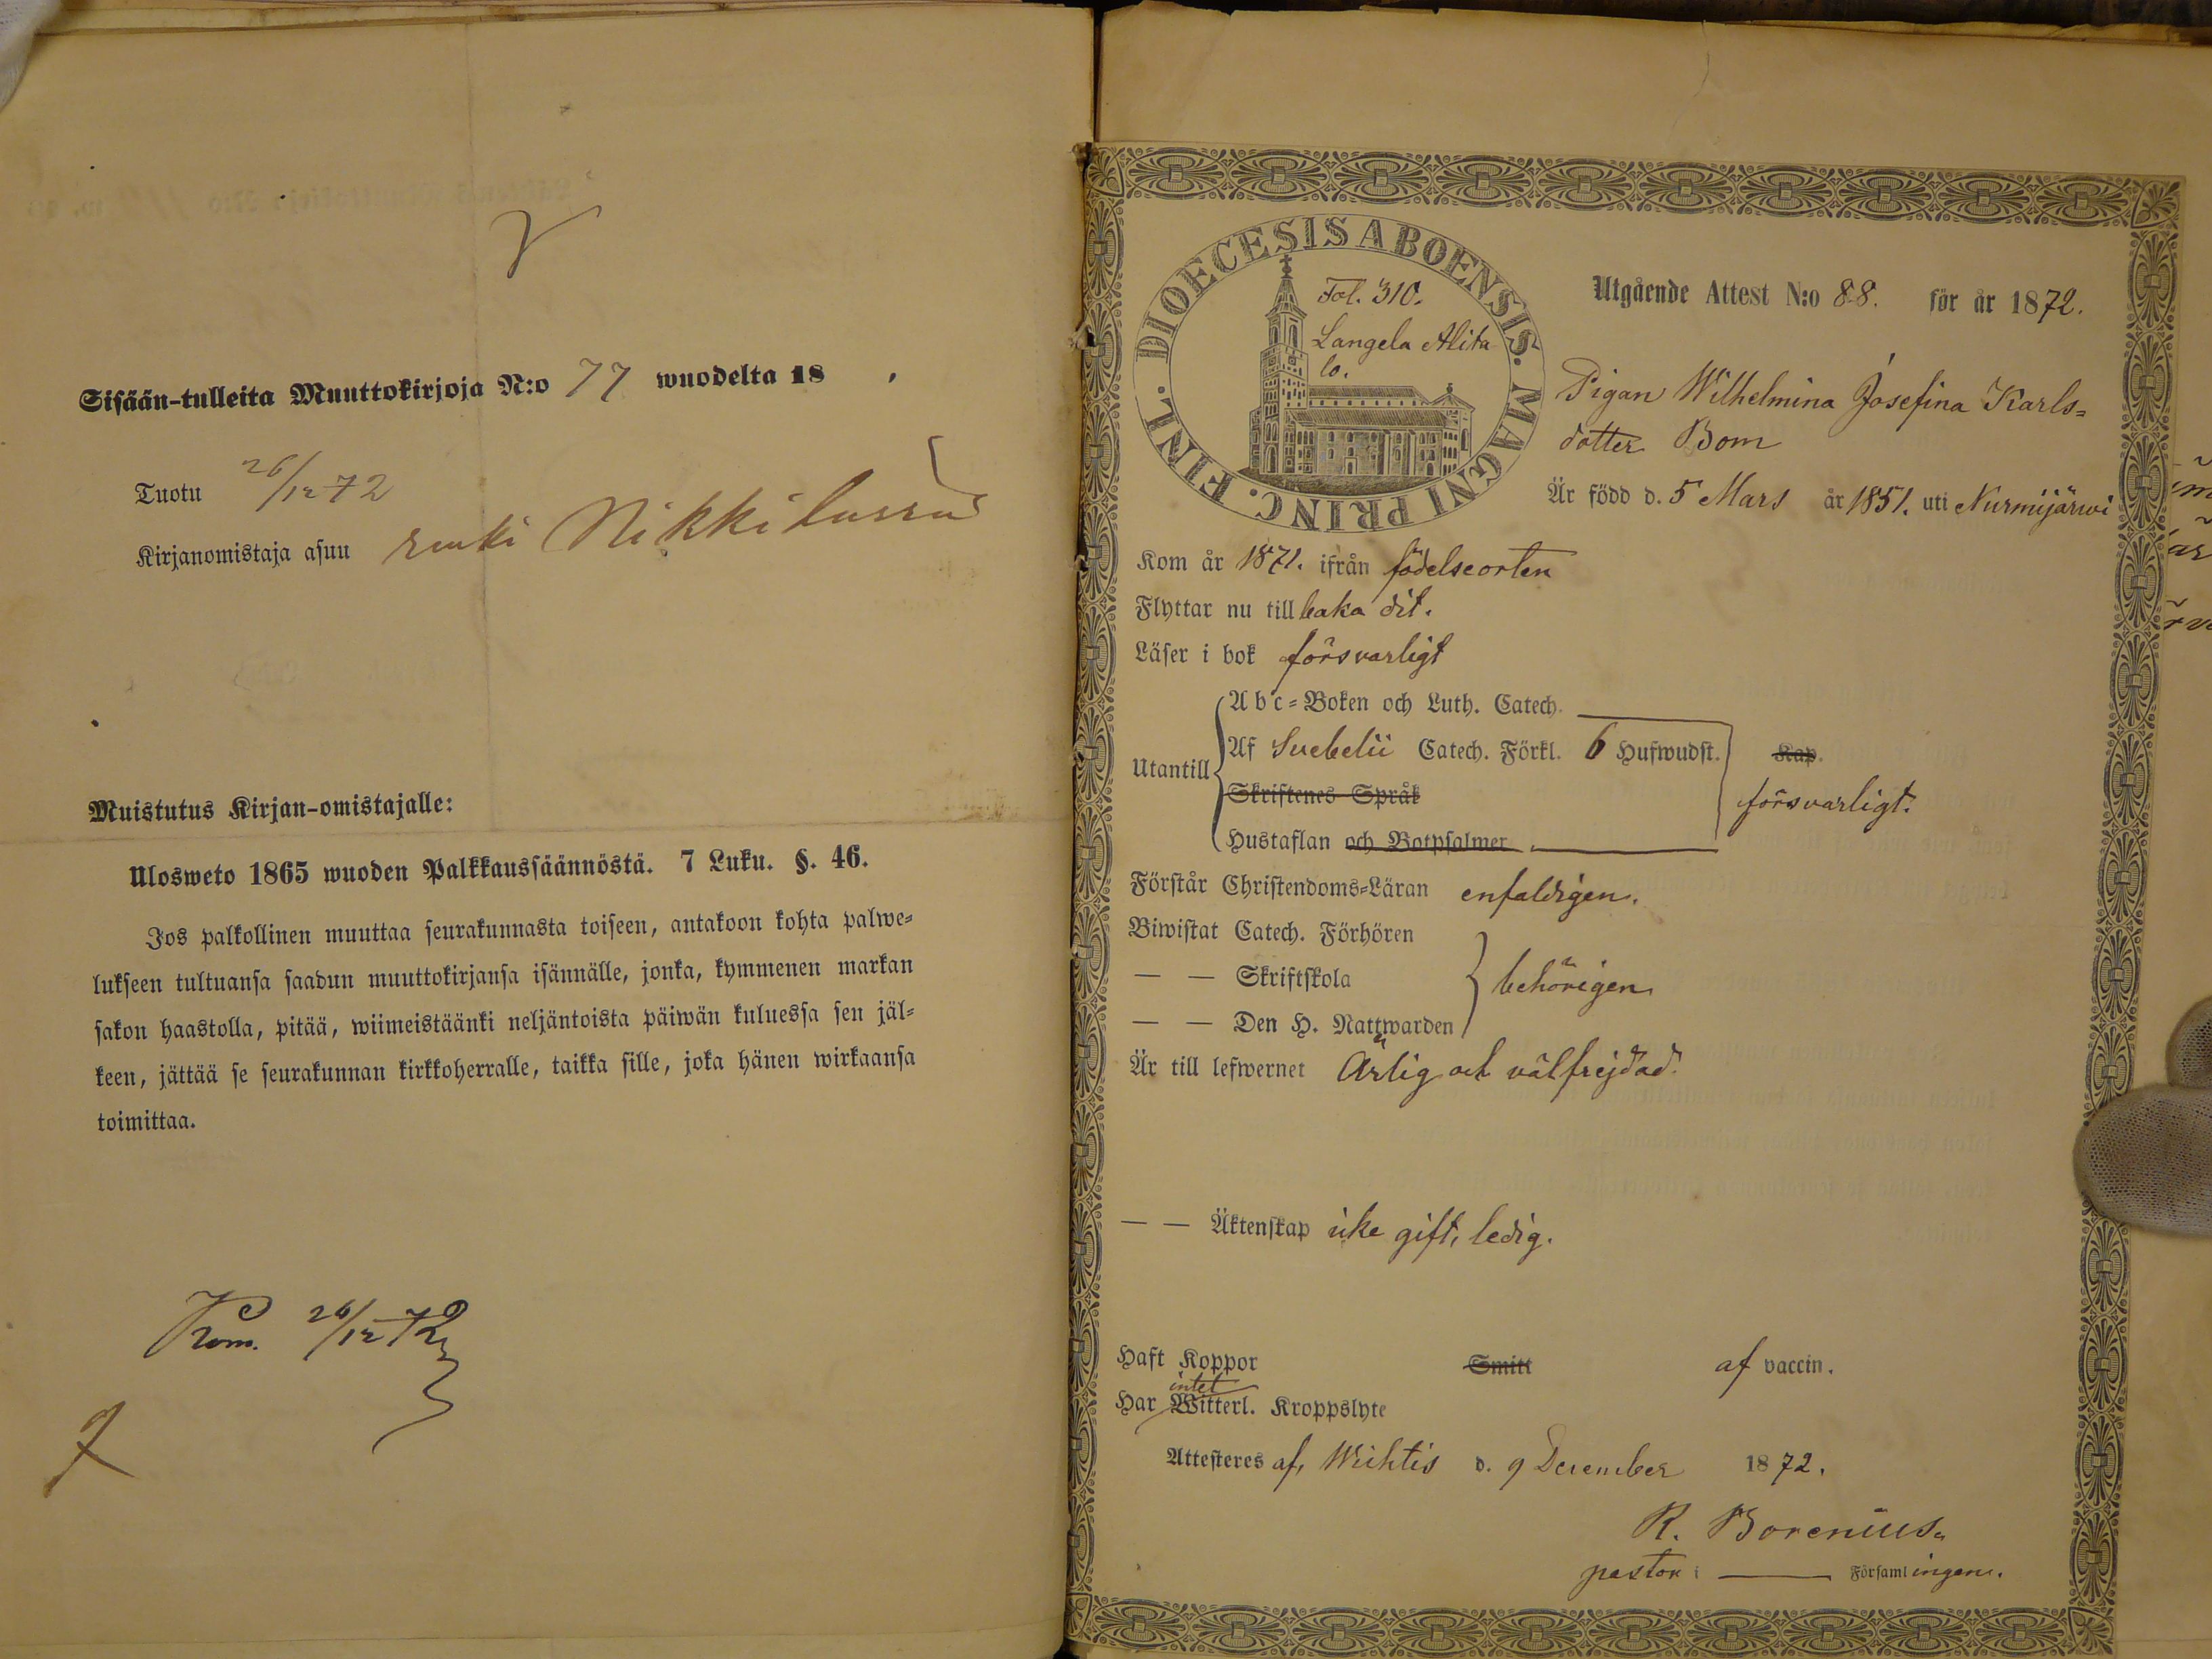 Sisään-tulleita Muuttokirjoja N:o 77 wuodelta 18 .
Tuotu 26/12 72
Kirjanomistaja asuu
Muistutus Kirjan-omistajalle:
Ulosweto 1865 wuoden Palkkaussäännöstä. 7 Luku. §. 46.
Jos palkollinen muuttaa seurakunnasta toiseen, antakoon kohta palwe=
lukseen tultuansa saadun muuttokirjansa isännälle, jonka, kymmenen markan
sakon haastolla, pitää, wiimeistäänki neljäntoista päiwän kuluessa sen jäl=
keen, jättää se seurakunnan kirkkoherralle, taikka sille, joka hänen wirkaansa
toimittaa.
Kom. 26/12 72
DIOECESIS ABOENSIS. MAGNI PRINC. FINL.
Fol. 310.
Langela Alita
lo.
Utgående Attest N:o 88. för år 1872.
Pigan Wilhelmina Josefina Karls=
dotter Bom
Är född d. 5 Mars år 1851. uti Nurmijärwi
Kom år 1871. ifrån födelseorten
Flyttar nu till baka dit.
Läser i bok försvarligt
Abc=Boken och Luth. Catech.
Utantill
Af Svebelii Catech. Förkl. 6 Hufwudst. Kap.
Skriftenes Språk
försvarligt.
Hustaflan och Botpsalmer
Förstår Christendoms=Läran enfaldigen.
Biwistat Catech. Förhören
— — Skriftskola
behörigen
— — Den H. Nattwarden
Är till lefwernet Ärlig och välfrejdad.
— — Äktenskap icke gift, ledig.
Haft Koppor Smitt af vaccin.
intet
Har Witterl. Kroppslyte
Attesteres af, Wichtis d. 9 December 1872.
R. Borenius.
pastor i — Församlingen.